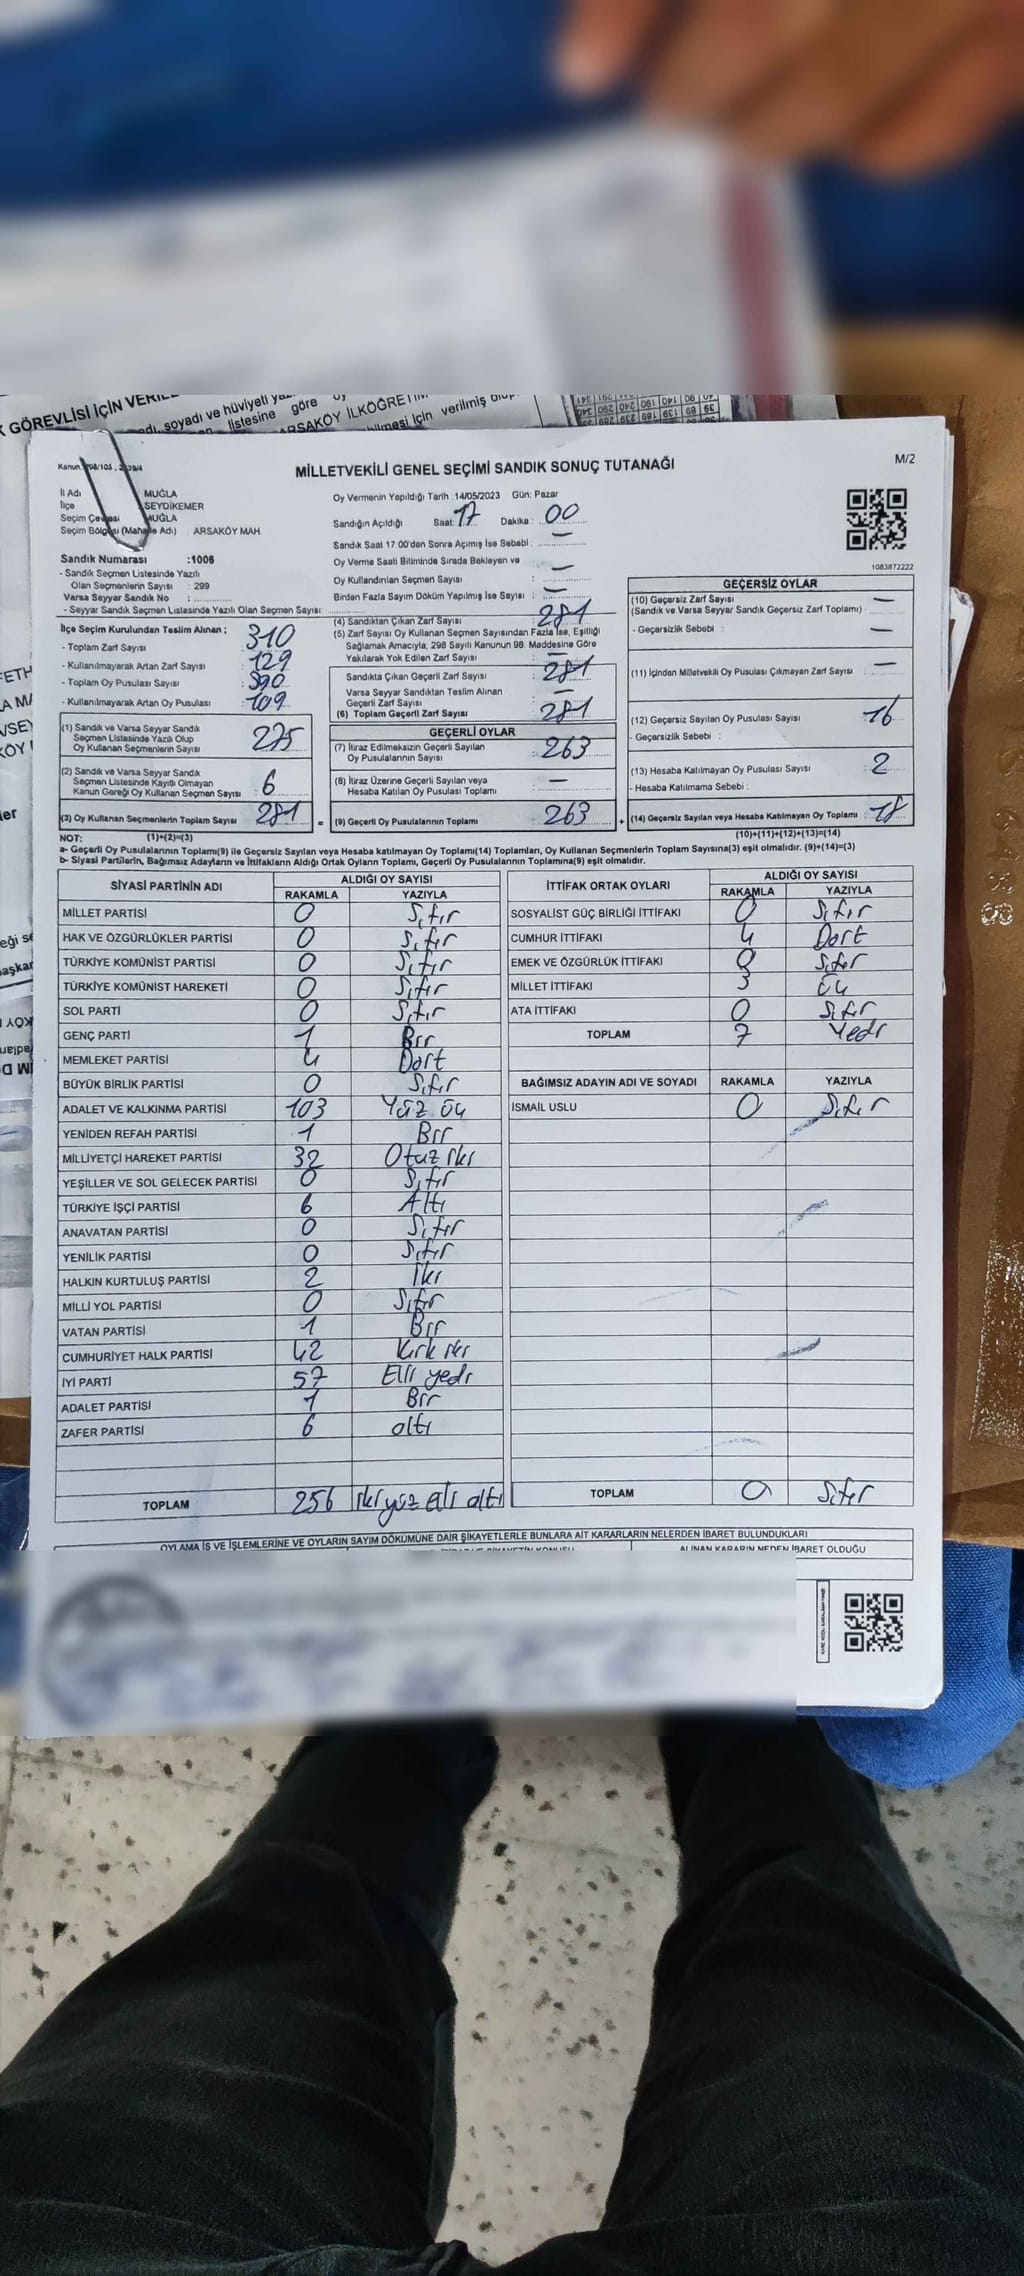 K GÖREVLİSİ İÇİN
soyadı ve hüviyeti
listesine göre
ARSAKÖY İLKÖĞRETİM
bilmesi için verilmiş
Kanun
MİLLETVEKİLİ GENEL SEÇİMİ SANDIK SONUÇ TUTANAĞI
M/2
İl Adı MUĞLA
İlçe SEYDİKEMER
Seçim Çevresi MUĞLA
Seçim Bölgesi (Mahalle Adı) : ARSAKÖY MAH.
Oy Vermenin Yapıldığı Tarih :14/05/2023 Gün: Pazar
Sandığın Açıldığı Saat: 17 Dakika : 00
Sandık Saat 17:00'den Sonra Açımış İse Sebebi : —
Oy Verme Saati Bitiminde Sırada Bekleyen ve
Oy Kullandırılan Seçmen Sayısı : —
Birden Fazla Sayım Döküm Yapılmış İse Sayısı : —
1083872222
Sandık Numarası :1006
- Sandık Seçmen Listesinde Yazılı
Olan Seçmenlerin Sayısı : 299
Varsa Seyyar Sandık No :
- Seyyar Sandık Seçmen Listesinde Yazılı Olan Seçmen Sayısı:
İlçe Seçim Kurulundan Teslim Alınan ;
- Toplam Zarf Sayısı 310
- Kullanılmayarak Artan Zarf Sayısı 129
- Toplam Oy Pusulası Sayısı 390
- Kullanılmayarak Artan Oy Pusulası 109
(1) Sandık ve Varsa Seyyar Sandık
Seçmen Listesinde Yazılı Olup
Oy Kullanan Seçmenlerin Sayısı 275
(2) Sandık ve Varsa Seyyar Sandık
Seçmen Listesinde Kayıtlı Olmayan
Kanun Gereği Oy Kullanan Seçmen Sayısı : 6
(3) Oy Kullanan Seçmenlerin Toplam Sayısı 281
(4) Sandıktan Çıkan Zarf Sayısı 281
(5) Zarf Sayısı Oy Kullanan Seçmen Sayısından Fazla İse, Eşitliği
Sağlamak Amacıyla, 298 Sayılı Kanunun 98. Maddesine Göre
Yakılarak Yok Edilen Zarf Sayısı : —
Sandıkta Çıkan Geçerli Zarf Sayısı 281
Varsa Seyyar Sandıktan Teslim Alınan
Geçerli Zarf Sayısı —
(6) Toplam Geçerli Zarf Sayısı 281
GEÇERLİ OYLAR
(7) İtiraz Edilmeksizin Geçerli Sayılan
Oy Pusulalarının Sayısı 263
(8) İtiraz Üzerine Geçerli Sayılan veya
Hesaba Katılan Oy Pusulası Toplamı —
= (9) Geçerli Oy Pusulalarının Toplamı 263
GEÇERSİZ OYLAR
(10) Geçersiz Zarf Sayısı —
(Sandık ve Varsa Seyyar Sandık Geçersiz Zarf Toplamı) :
- Geçersizlik Sebebi : —
(11) İçinden Milletvekili Oy Pusulası Çıkmayan Zarf Sayısı —
(12) Geçersiz Sayılan Oy Pusulası Sayısı 16
- Geçersizlik Sebebi :
(13) Hesaba Katılmayan Oy Pusulası Sayısı 2
- Hesaba Katılmama Sebebi :
+ (14) Geçersiz Sayılan veya Hesaba Katılmayan Oy Toplamı : 18
NOT: (1)+(2)=(3)
(10)+(11)+(12)+(13)=(14)
a- Geçerli Oy Pusulalarının Toplamı(9) ile Geçersiz Sayılan veya Hesaba katılmayan Oy Toplamı(14) Toplamları, Oy Kullanan Seçmenlerin Toplam Sayısına(3) eşit olmalıdır. (9)+(14)=(3)
b- Siyasi Partilerin, Bağımsız Adayların ve İttifakların Aldığı Ortak Oyların Toplamı, Geçerli Oy Pusulalarının Toplamına(9) eşit olmalıdır.
SİYASİ PARTİNİN ADI
ALDIĞI OY SAYISI
RAKAMLA YAZIYLA
MİLLET PARTİSİ 0 Sıfır
HAK VE ÖZGÜRLÜKLER PARTİSİ 0 Sıfır
TÜRKİYE KOMÜNİST PARTİSİ 0 Sıfır
TÜRKİYE KOMÜNİST HAREKETİ 0 Sıfır
SOL PARTİ 0 Sıfır
GENÇ PARTİ 1 Bir
MEMLEKET PARTİSİ 4 Dört
BÜYÜK BİRLİK PARTİSİ 0 Sıfır
ADALET VE KALKINMA PARTİSİ 103 Yüz üç
YENİDEN REFAH PARTİSİ 1 Bir
MİLLİYETÇİ HAREKET PARTİSİ 32 Otuz iki
YEŞİLLER VE SOL GELECEK PARTİSİ 0 Sıfır
TÜRKİYE İŞÇİ PARTİSİ 6 Altı
ANAVATAN PARTİSİ 0 Sıfır
YENİLİK PARTİSİ 0 Sıfır
HALKIN KURTULUŞ PARTİSİ 2 İki
MİLLİ YOL PARTİSİ 0 Sıfır
VATAN PARTİSİ 1 Bir
CUMHURİYET HALK PARTİSİ 42 Kırk iki
İYİ PARTİ 57 Elli yedi
ADALET PARTİSİ 1 Bir
ZAFER PARTİSİ 6 altı
TOPLAM 256 iki yüz elli altı
İTTİFAK ORTAK OYLARI
ALDIĞI OY SAYISI
RAKAMLA YAZIYLA
SOSYALİST GÜÇ BİRLİĞİ İTTİFAKI 0 Sıfır
CUMHUR İTTİFAKI 4 Dört
EMEK VE ÖZGÜRLÜK İTTİFAKI 0 Sıfır
MİLLET İTTİFAKI 3 Üç
ATA İTTİFAKI 0 Sıfır
TOPLAM 7 Yedi
BAĞIMSIZ ADAYIN ADI VE SOYADI RAKAMLA YAZIYLA
İSMAİL USLU 0 Sıfır
TOPLAM 0 Sıfır
OYLAMA İŞ VE İŞLEMLERİNE VE OYLARIN SAYIM DÖKÜMÜNE DAİR ŞİKAYETLERLE BUNLARA AİT KARARLARIN NELERDEN İBARET BULUNDUKLARI
ALINAN KARARIN NEDEN İBARET OLDUĞU